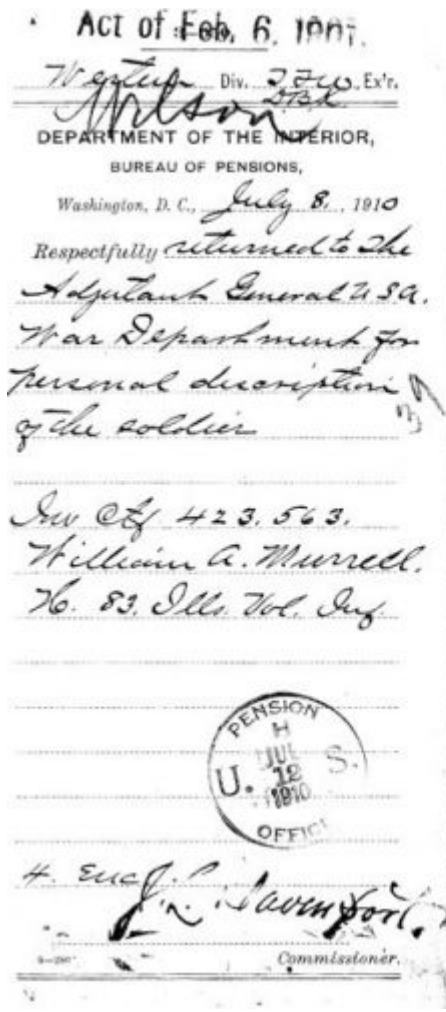 Act of Feb. 6, 1907.
Western Div. Ex'r.
Wilson
DEPARTMENT OF THE INTERIOR,
BUREAU OF PENSIONS,
Washington, D. C., July 8, 1910
Respectfully returned to the
Adjutant General U.S.A.
War Department for
personal description
of the soldier
Inv Ctf 423,563.
William A. Murrell.
H. 83. Ills. Vol. Inf
PENSION
H
JUL
U. 12 S.
1910
OFFICE
4. Enc
J. L. Davenport.
Commissioner.